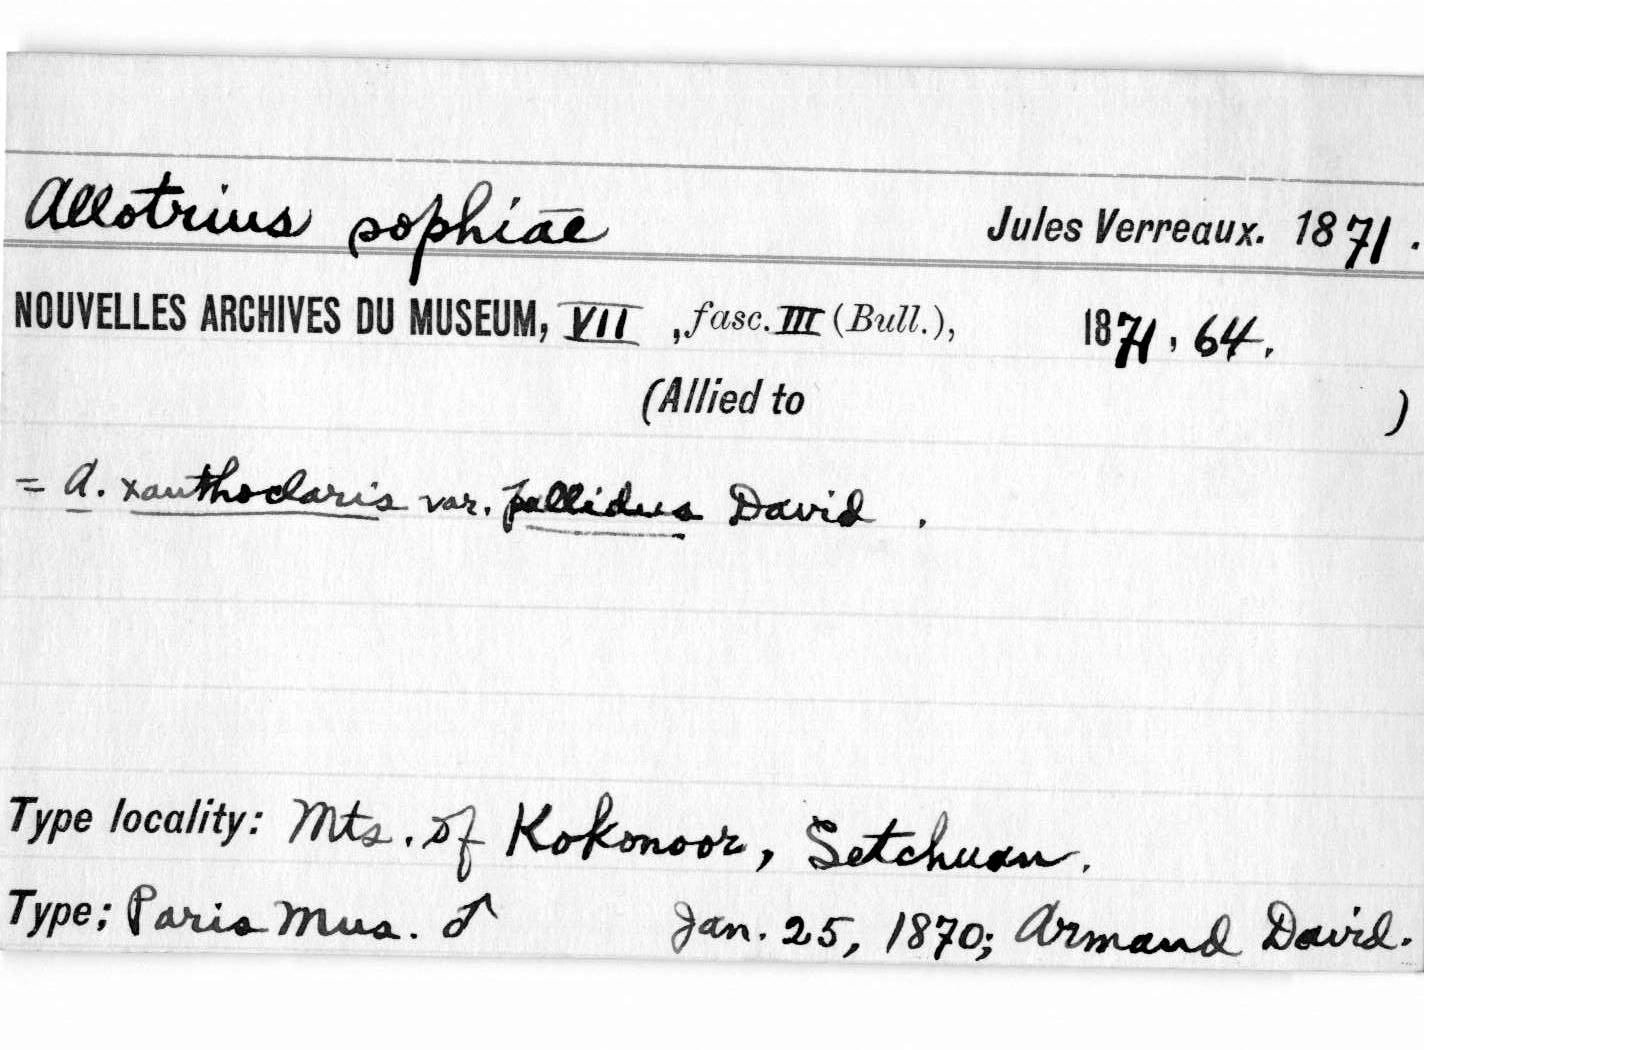 Allotrius sophiae Jules Verreaux. 1871.
NOUVELLES ARCHIVES DU MUSEUM, VII, fasc. III (Bull.), 1871, 64.
(Allied to )
= A. xanthoclaris var. pallidus David.
Type locality: Mts. of Kokonoor, Setchuan.
Type: Paris Mus. ♂ Jan. 25, 1870; Armand David.